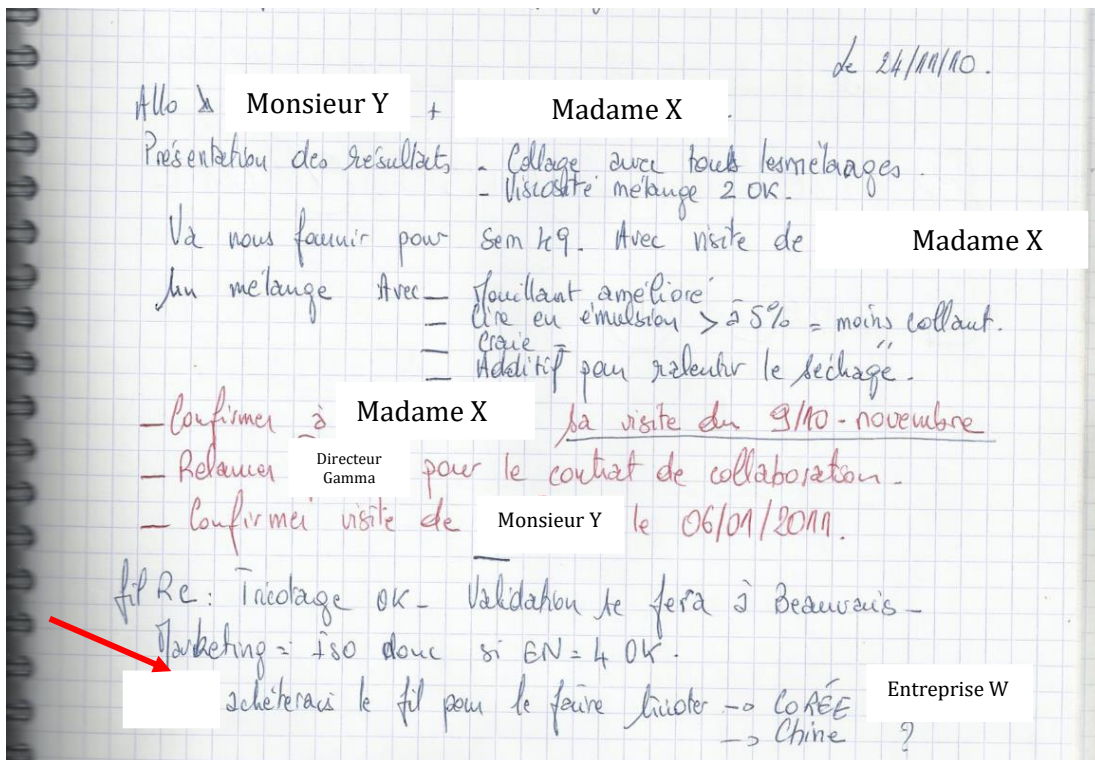 Le 24/11/10.
Allo à Monsieur Y + Madame X
Présentation des résultats - Collage avec touts les mélanges.
- Viscosité mélange 2 OK.
Va nous fournir pour sem 49. Avec visite de Madame X
Un mélange Avec - Mouillant amélioré
- Cire en émulsion > à 5% = moins collant.
- Craie =
- Additif pour ralentir le séchage.
- Confirmer à Madame X sa visite du 9/10 - novembre
- Relancer Directeur Gamma pour le contrat de collaboration -
- Confirmer visite de Monsieur Y le 06/01/2011.
fil Re : Tricotage OK - Validation se fera à Beauvais -
Marketing = iso donc si EN = 4 OK.
achèterais le fil pour le faire tricoter -> CORÉE Entreprise W
-> Chine ?